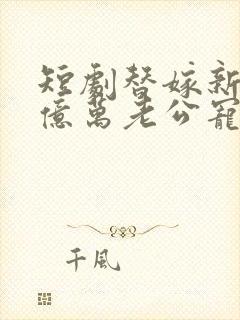 短劇替嫁新
億萬老公寵
千風